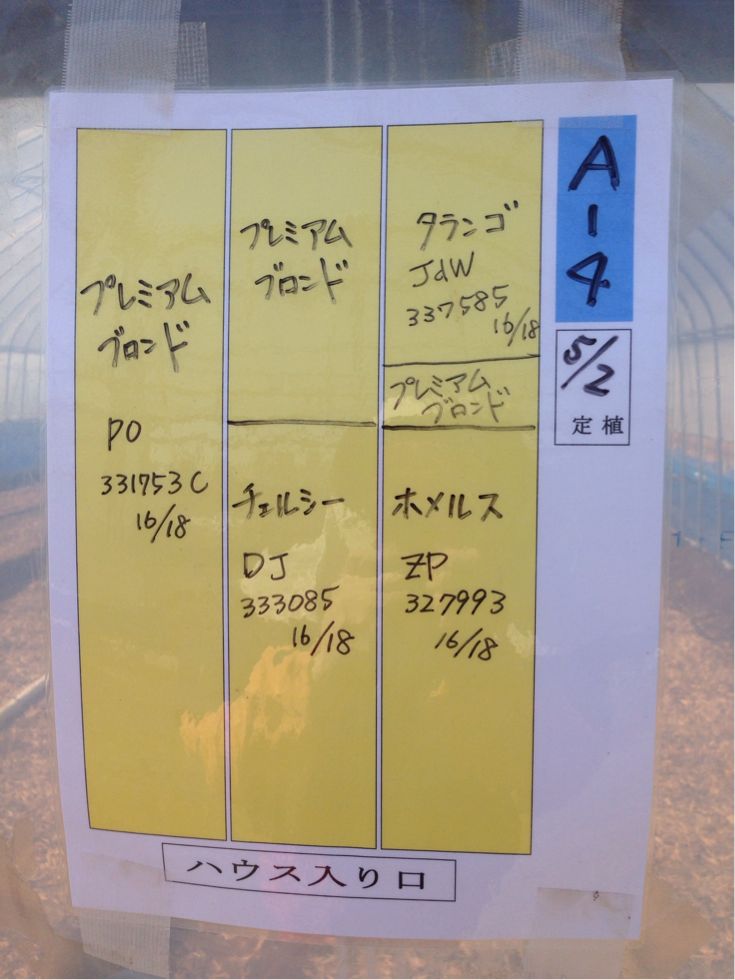 A-4
5/2
定植
プレミアム
ブロンド
PO
331753C
16/18
プレミアム
ブロンド
チェルシー
DJ
333085
16/18
タランゴ
JdW
337585
16/18
プレミアム
ブロンド
ホメルス
ZP
327993
16/18
ハウス入り口